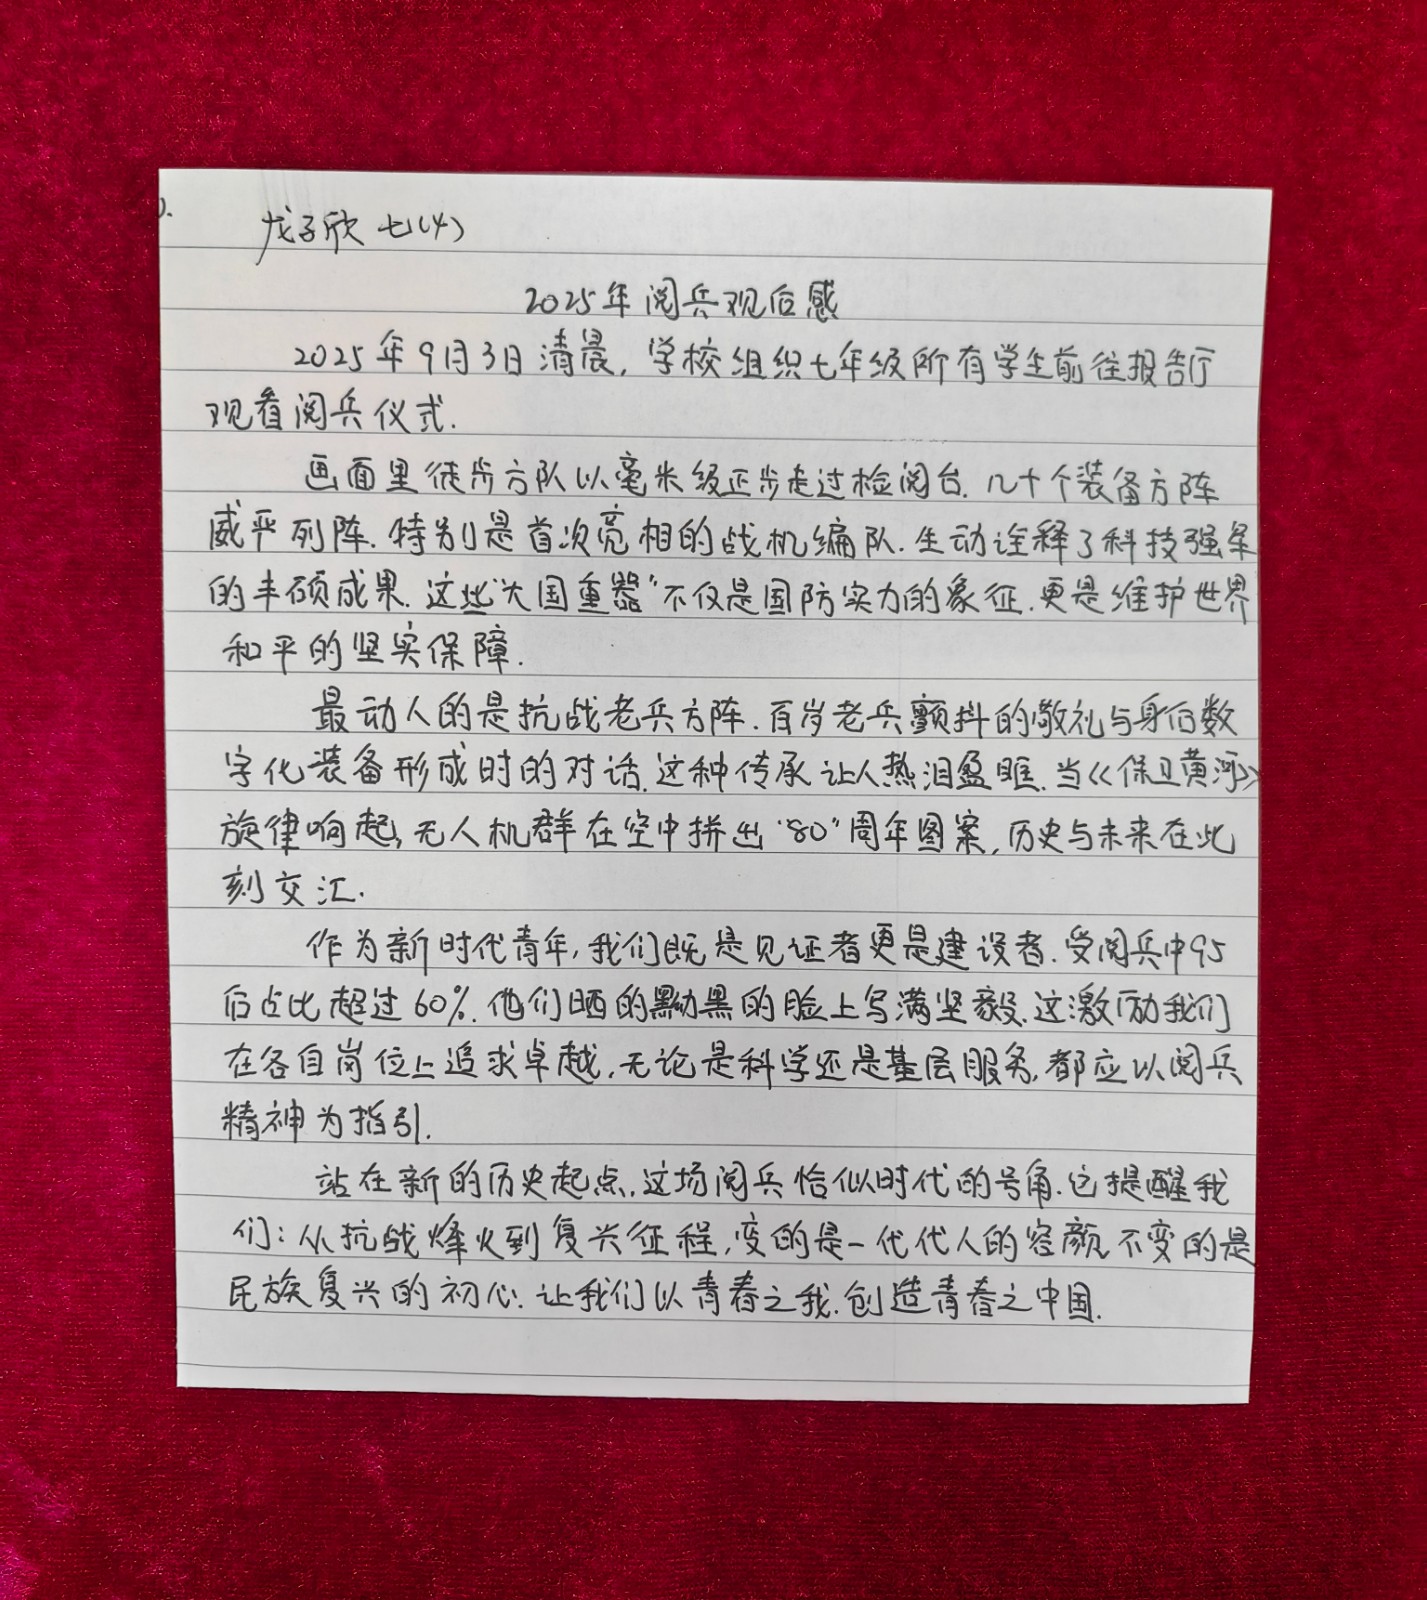 龙子欣 七(4)
2025年阅兵观后感
2025年9月3日清晨,学校组织七年级所有学生前往报告厅
观看阅兵仪式.
画面里徒步方队以毫米级正步走过检阅台.几十个装备方阵
威严列阵.特别是首次亮相的战机编队.生动诠释了科技强军
的丰硕成果.这些"大国重器"不仅是国防实力的象征.更是维护世界
和平的坚实保障.
最动人的是抗战老兵方阵.百岁老兵颤抖的敬礼与身后数
字化装备形成时的对话.这种传承让人热泪盈眶.当《保卫黄河》
旋律响起,无人机群在空中拼出"80"周年图案,历史与未来在此
刻交汇.
作为新时代青年,我们既是见证者更是建设者.受阅兵中95
后占比超过60%.他们晒的黝黑的脸上写满坚毅.这激励我们
在各自岗位上追求卓越,无论是科学还是基层服务,都应以阅兵
精神为指引.
站在新的历史起点,这场阅兵恰似时代的号角.它提醒我
们:从抗战烽火到复兴征程,变的是一代代人的容颜不变的是
民族复兴的初心.让我们以青春之我.创造青春之中国.